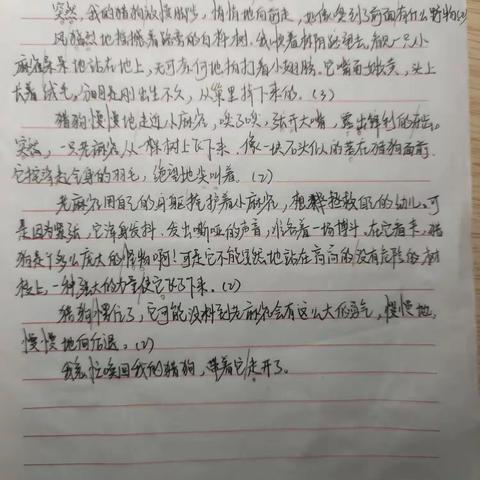 突然,我的猎狗放慢脚步,悄悄地向前走,好像嗅到了前面有什么野物(2)
风猛烈地摇撼着路旁的白桦树。我顺着林荫路望去,看见一只小
麻雀呆呆地站在地上,无可奈何地拍打着小翅膀。它嘴角嫩黄,头上
长着绒毛,分明是刚出生不久,从巢里掉下来的。(3)
猎狗慢慢地走近小麻雀,嗅了嗅,张开大嘴,露出锋利的牙齿。
突然,一只老麻雀从一棵树上飞下来,像一块石头似的落在猎狗面前。
它挓挲起全身的羽毛,绝望地尖叫着。(2)
老麻雀用自己的身躯掩护着小麻雀,想拯救自己的幼儿。可
是因为紧张,它浑身发抖,发出嘶哑的声音,准备着一场搏斗。在它看来,猎
狗是个多么庞大的怪物啊!可是它不能安然地站在高高的没有危险的树
枝上,一种强大的力量使它飞了下来。(2)
猎狗愣住了,它可能没料到老麻雀会有这么大的勇气,慢慢地,
慢慢地向后退。(2)
我急忙唤回我的猎狗,带着它走开了。